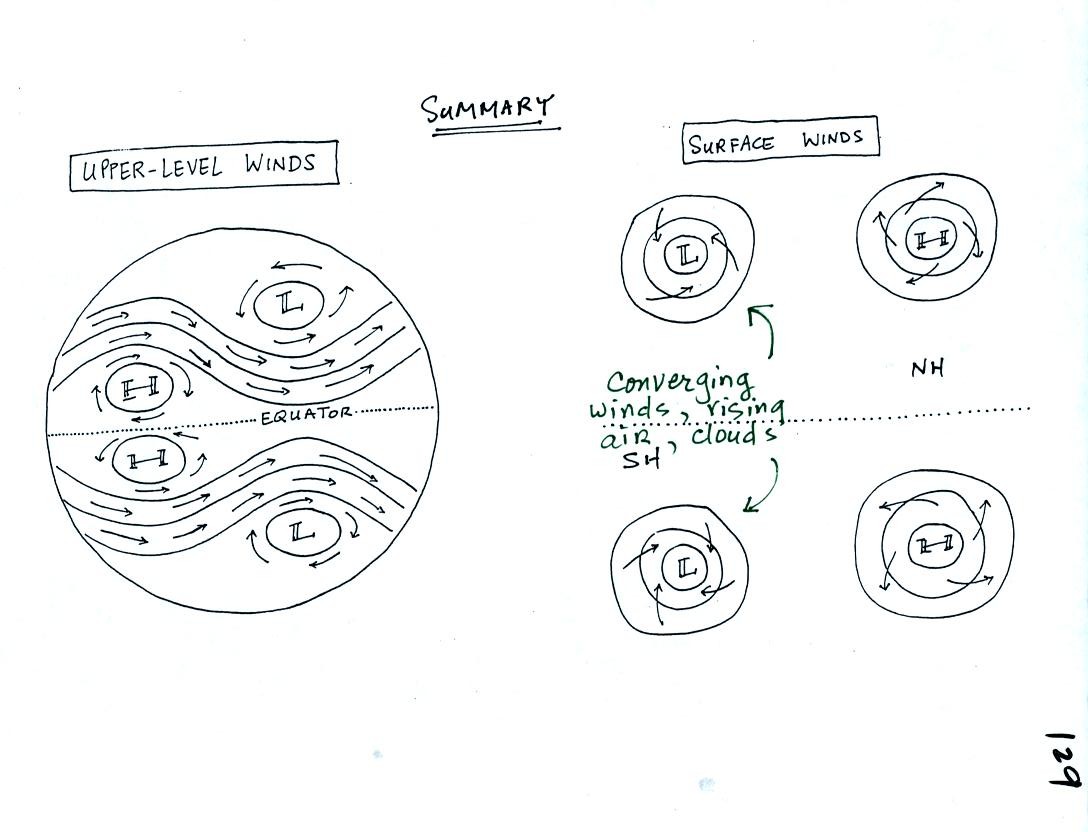 SUMMARY
UPPER-LEVEL WINDS
SURFACE WINDS
L
H
EQUATOR
H
L
L
H
NH
Converging
winds, rising
air, clouds
SH
L
H
129